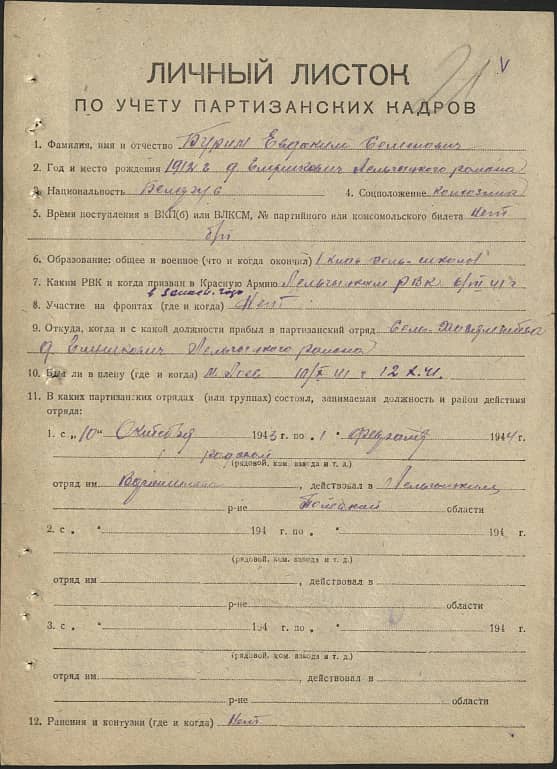 21 V
ЛИЧНЫЙ ЛИСТОК
ПО УЧЕТУ ПАРТИЗАНСКИХ КАДРОВ
1. Фамилия, имя и отчество Бурим Евдоким Семенович
2. Год и место рождения 1912 г. д. Лельчицкого района
3. Национальность Белорус 4. Соцположение
5. Время поступления в ВКП(б) или ВЛКСМ, № партийного или комсомольского билета Нет
б/п
6. Образование: общее и военное (что и когда окончил) 1 сель-школы
7. Каким РВК и когда призван в Красную Армию Лельчицким РВК 6/VII 41 г
8. Участие на фронтах (где и когда) Нет
9. Откуда, когда и с какой должности прибыл в партизанский отряд
д. Лельчицкого района
10. Был ли в плену (где и когда) 10/X 41 г 12.X.41.
11. В каких партизанских отрядах (или группах) состоял, занимаемая должность и район действия
отряда:
1. с „10" Октября 1943 г. по „1 " февраля 1944 г.
рядовой
(рядовой, ком. взвода и т. д.)
отряд им Ворошилова , действовал в Лельчицком
р-не Полесской области
2. с „ " 194 г. по „ " 194 г.
(рядовой, ком. взвода и т. д.)
отряд им , действовал в
р-не области
3. с „ " 194 г. по „ " 194 г.
(рядовой, ком. взвода и т. д.)
отряд им , действовал в
р-не области
12. Ранения и контузии (где и когда) Нет